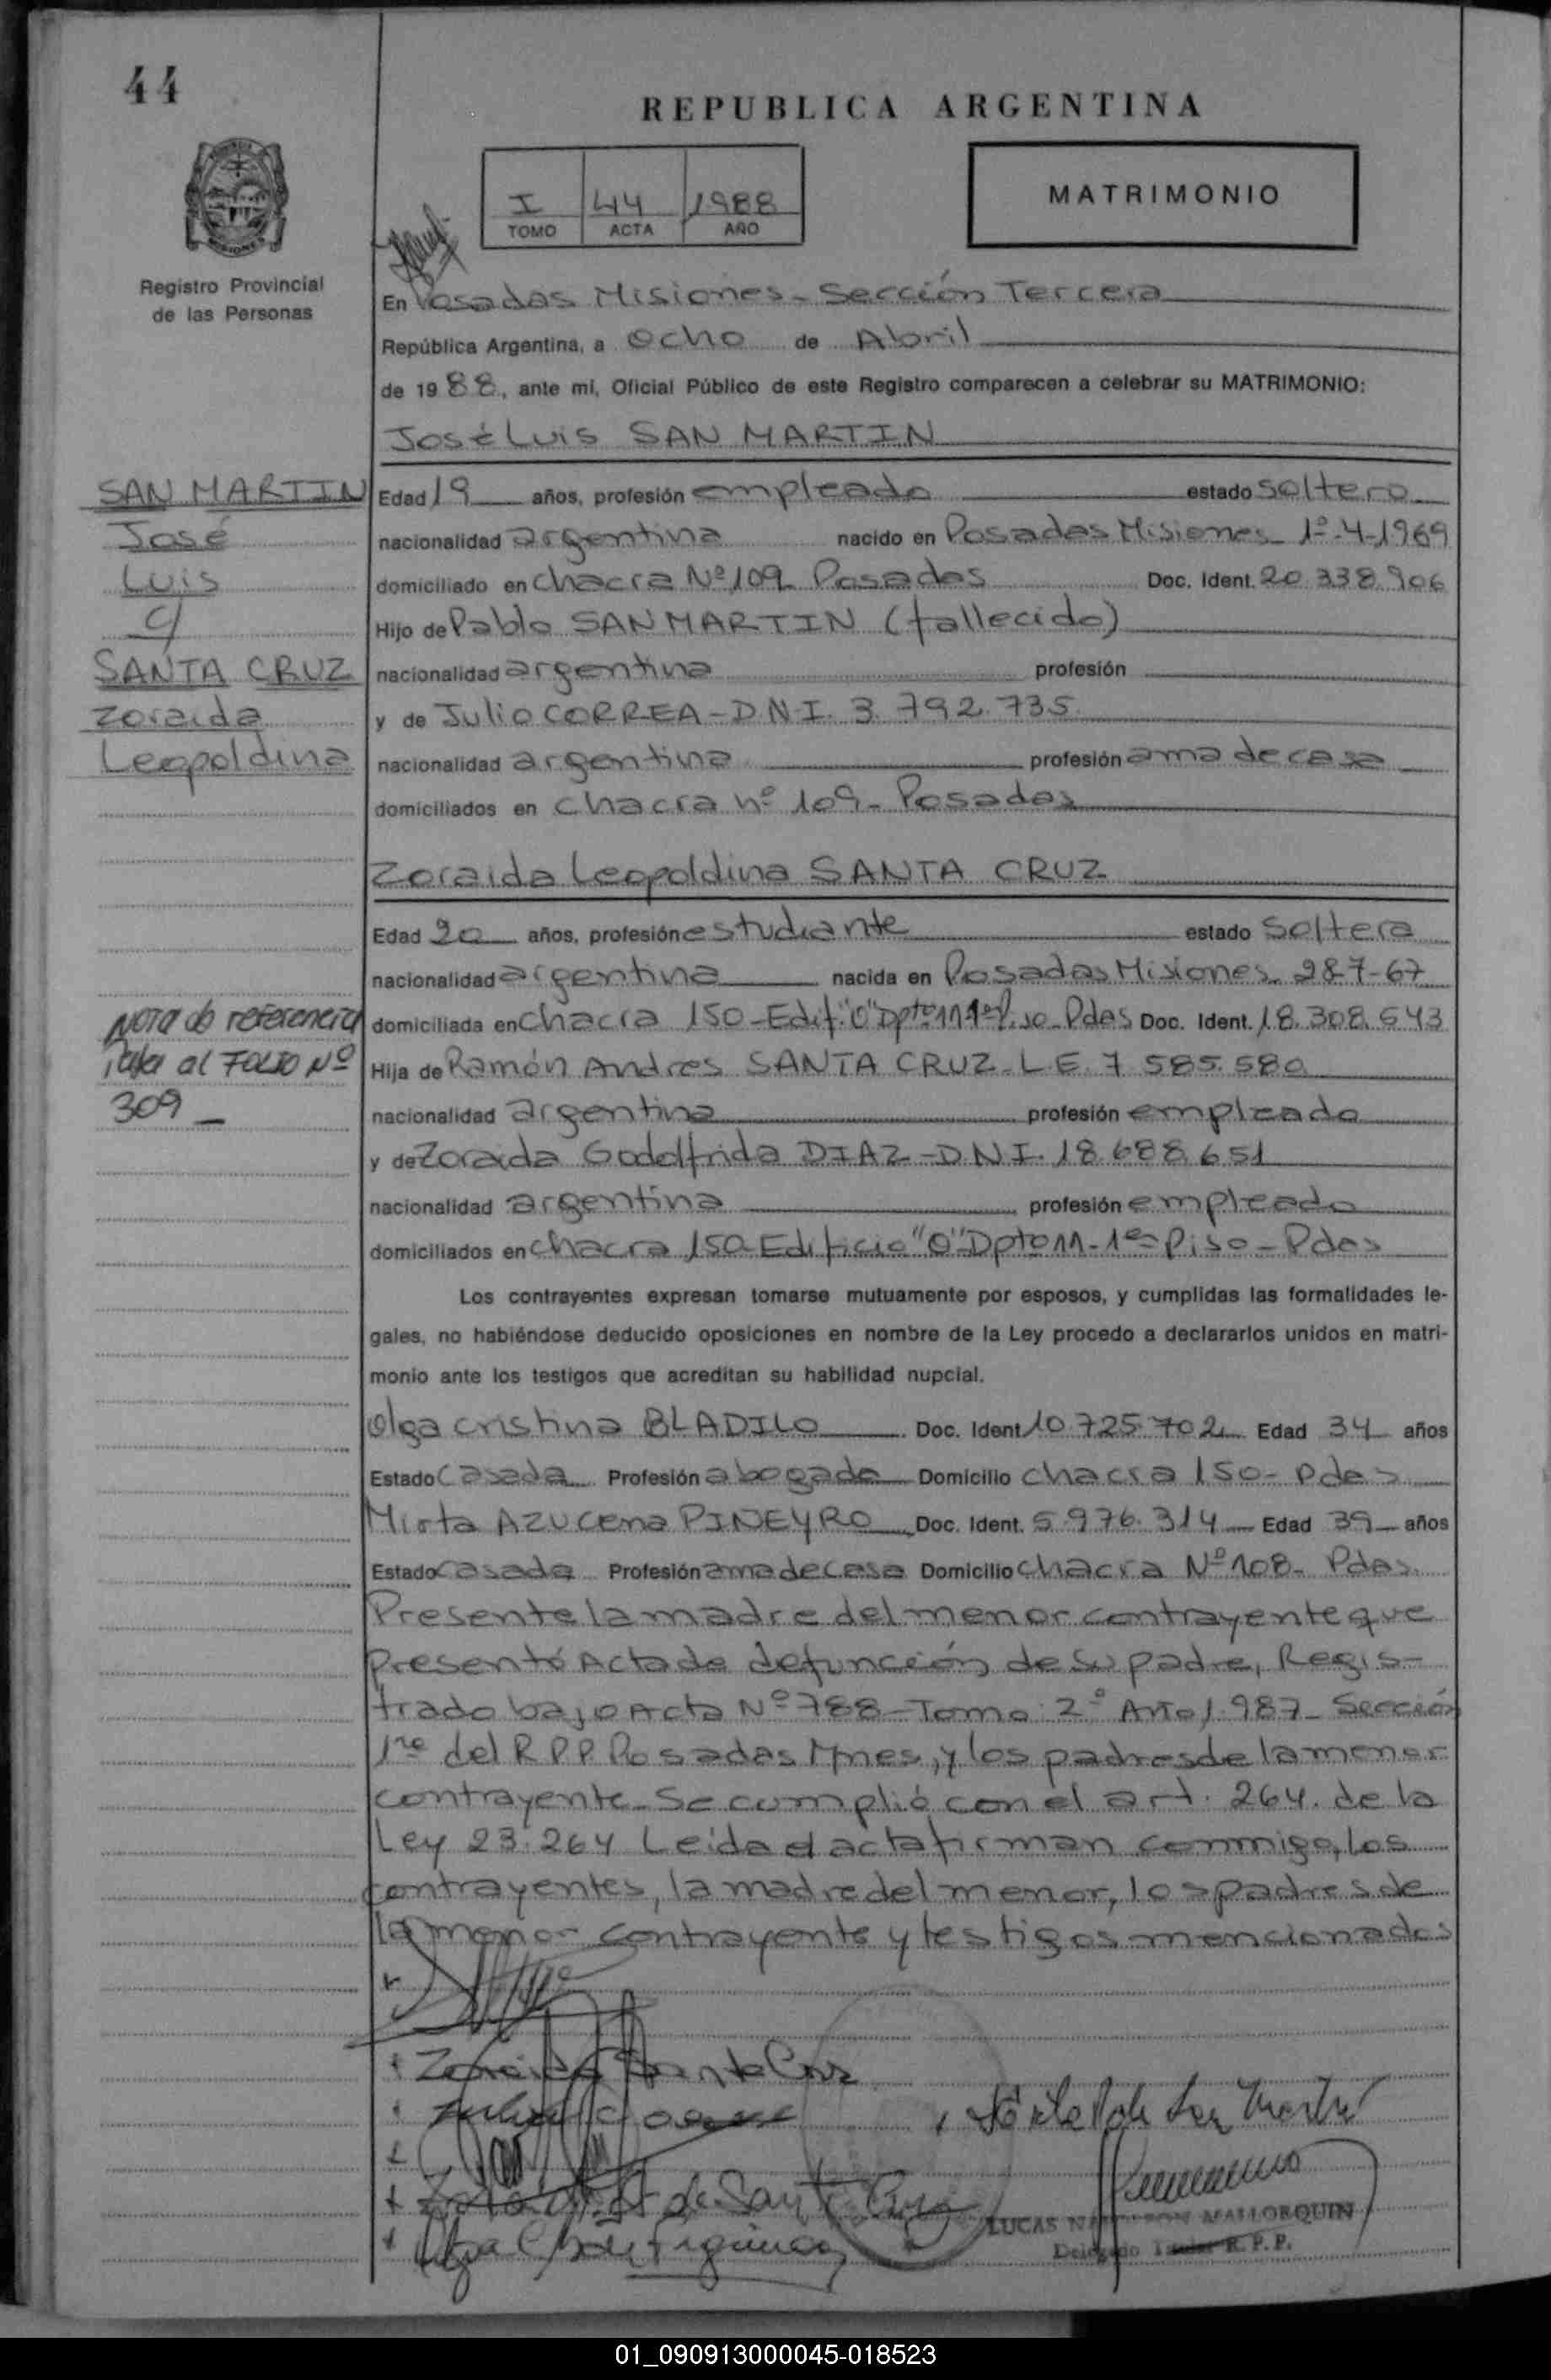 44
REPUBLICA ARGENTINA
I 44 1988
TOMO ACTA AÑO
MATRIMONIO
Registro Provincial
de las Personas
En Posadas Misiones - Sección Tercera
República Argentina, a ocho de Abril
de 1988, ante mí, Oficial Público de este Registro comparecen a celebrar su MATRIMONIO:
José Luis SAN MARTIN
SAN MARTIN
José
Luis
c/
SANTA CRUZ
Zoraida
Leopoldina
Edad 19 años, profesión empleado estado soltero
nacionalidad argentina nacido en Posadas Misiones - 1º-4-1969
domiciliado en chacra Nº 109 Posadas Doc. Ident. 20.338.906
Hijo de Pablo SAN MARTIN (fallecido)
nacionalidad argentina profesión
y de Julio CORREA - D.N.I. 3.792.735
nacionalidad argentina profesión ama de casa
domiciliados en chacra nº 109 - Posadas
Zoraida Leopoldina SANTA CRUZ
Edad 20 años, profesión estudiante estado soltera
nacionalidad argentina nacida en Posadas Misiones - 28-7-67
domiciliada en chacra 150 - Edif. "O" Dpto 11 1er Piso - Pdas Doc. Ident. 18.308.643
Hija de Ramón Andres SANTA CRUZ - L.E. 7.585.580
nacionalidad argentina profesión empleado
y de Zoraida Godolfrida DIAZ - D.N.I. 18.688.651
nacionalidad argentina profesión empleada
domiciliados en chacra 150 Edificio "O" Dpto 11 - 1er Piso - Pdas
Nota de referencia
pasa al FOLIO Nº
309 -
Los contrayentes expresan tomarse mutuamente por esposos, y cumplidas las formalidades le-
gales, no habiéndose deducido oposiciones en nombre de la Ley procedo a declararlos unidos en matri-
monio ante los testigos que acreditan su habilidad nupcial.
Olga Cristina BLADILO Doc. Ident 10.725.702 Edad 34 años
Estado casada Profesión abogada Domicilio chacra 150 - Pdas
Mirta Azucena PINEYRO Doc. Ident. 5.976.314 Edad 39 años
Estado casada Profesión ama de casa Domicilio chacra Nº 108 - Pdas.
Presente la madre del menor contrayente que
presentó Acta de defunción de su padre, Regis-
trado bajo Acta Nº 788 - Tomo 2º Año 1.987 - Sección
1ra del R.P.P. Posadas Mnes, y los padres de la menor
contrayente - Se cumplió con el art. 264. de la
Ley 23.264 Leída el acta firman conmigo, los
contrayentes, la madre del menor, los padres de
la menor contrayente y testigos mencionados
Zoraida Santa Cruz
de San Martin
de Santa Cruz
LUCAS MALLORQUIN
Delegado R.P.P.
01_090913000045-018523